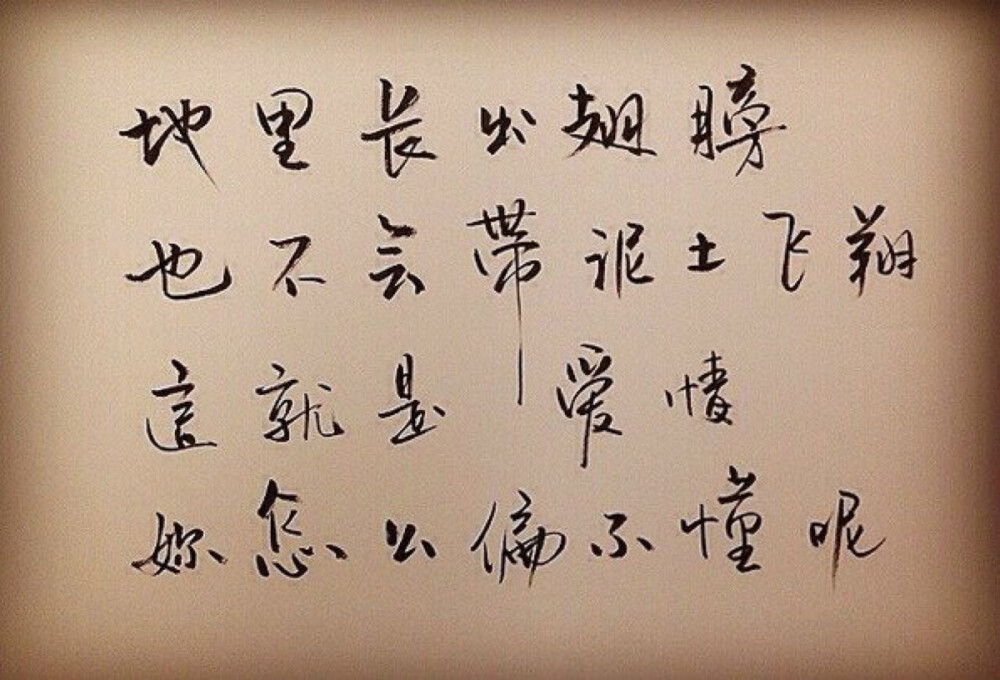 地里长出翅膀
也不会带泥土飞翔
這就是爱情
妳怎么偏不懂呢